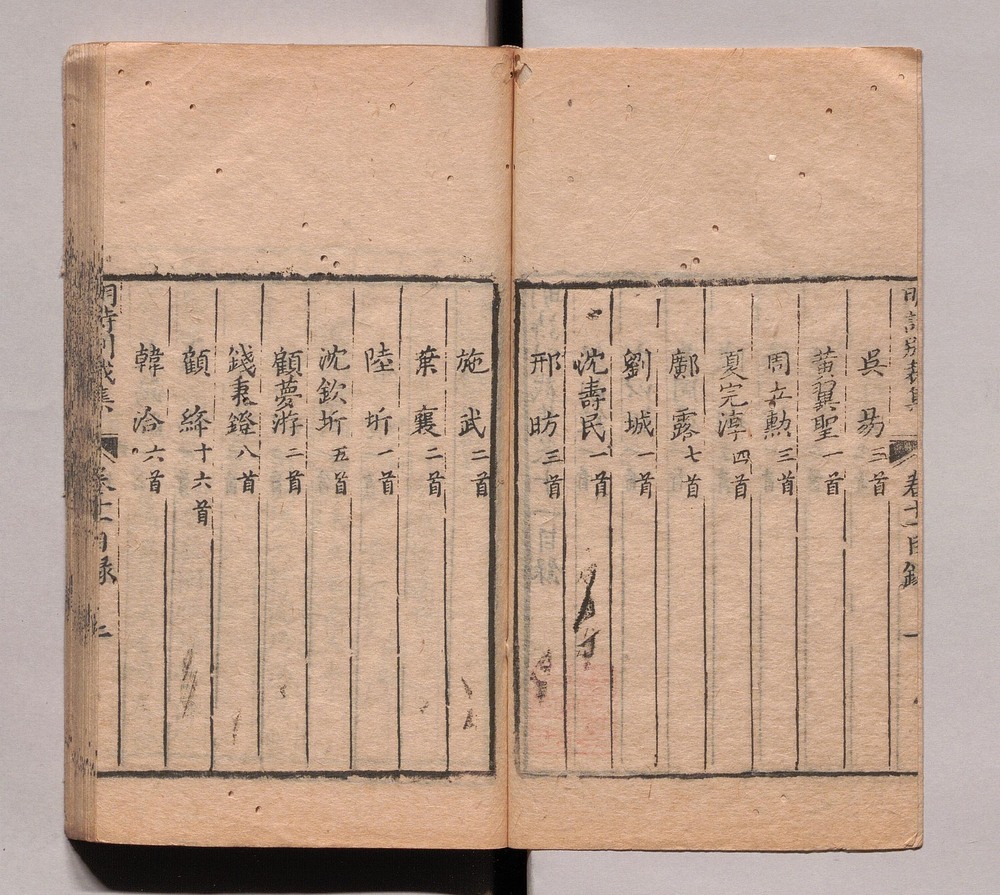 明詩別裁集 卷十一目錄 一
吳昜三首
黃翼聖一首
周立勳三首
夏完淳四首
鄺露七首
劉城一首
沈壽民一首
邢昉三首
施武二首
葉襄二首
陸圻一首
沈欽圻五首
顧夢游二首
錢秉鐙八首
顧絳十六首
韓洽六首
明詩別裁集 卷十一目錄 二